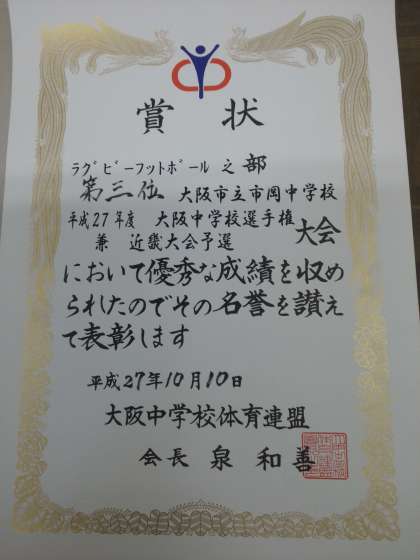 賞状
ラグビーフットボール之部
第三位 大阪市立市岡中学校
平成27年度 大阪中学校選手権
兼 近畿大会予選 大会
において優秀な成績を収め
られたのでその名誉を讃え
て表彰します
平成27年10月10日
大阪中学校体育連盟
会長 泉 和善